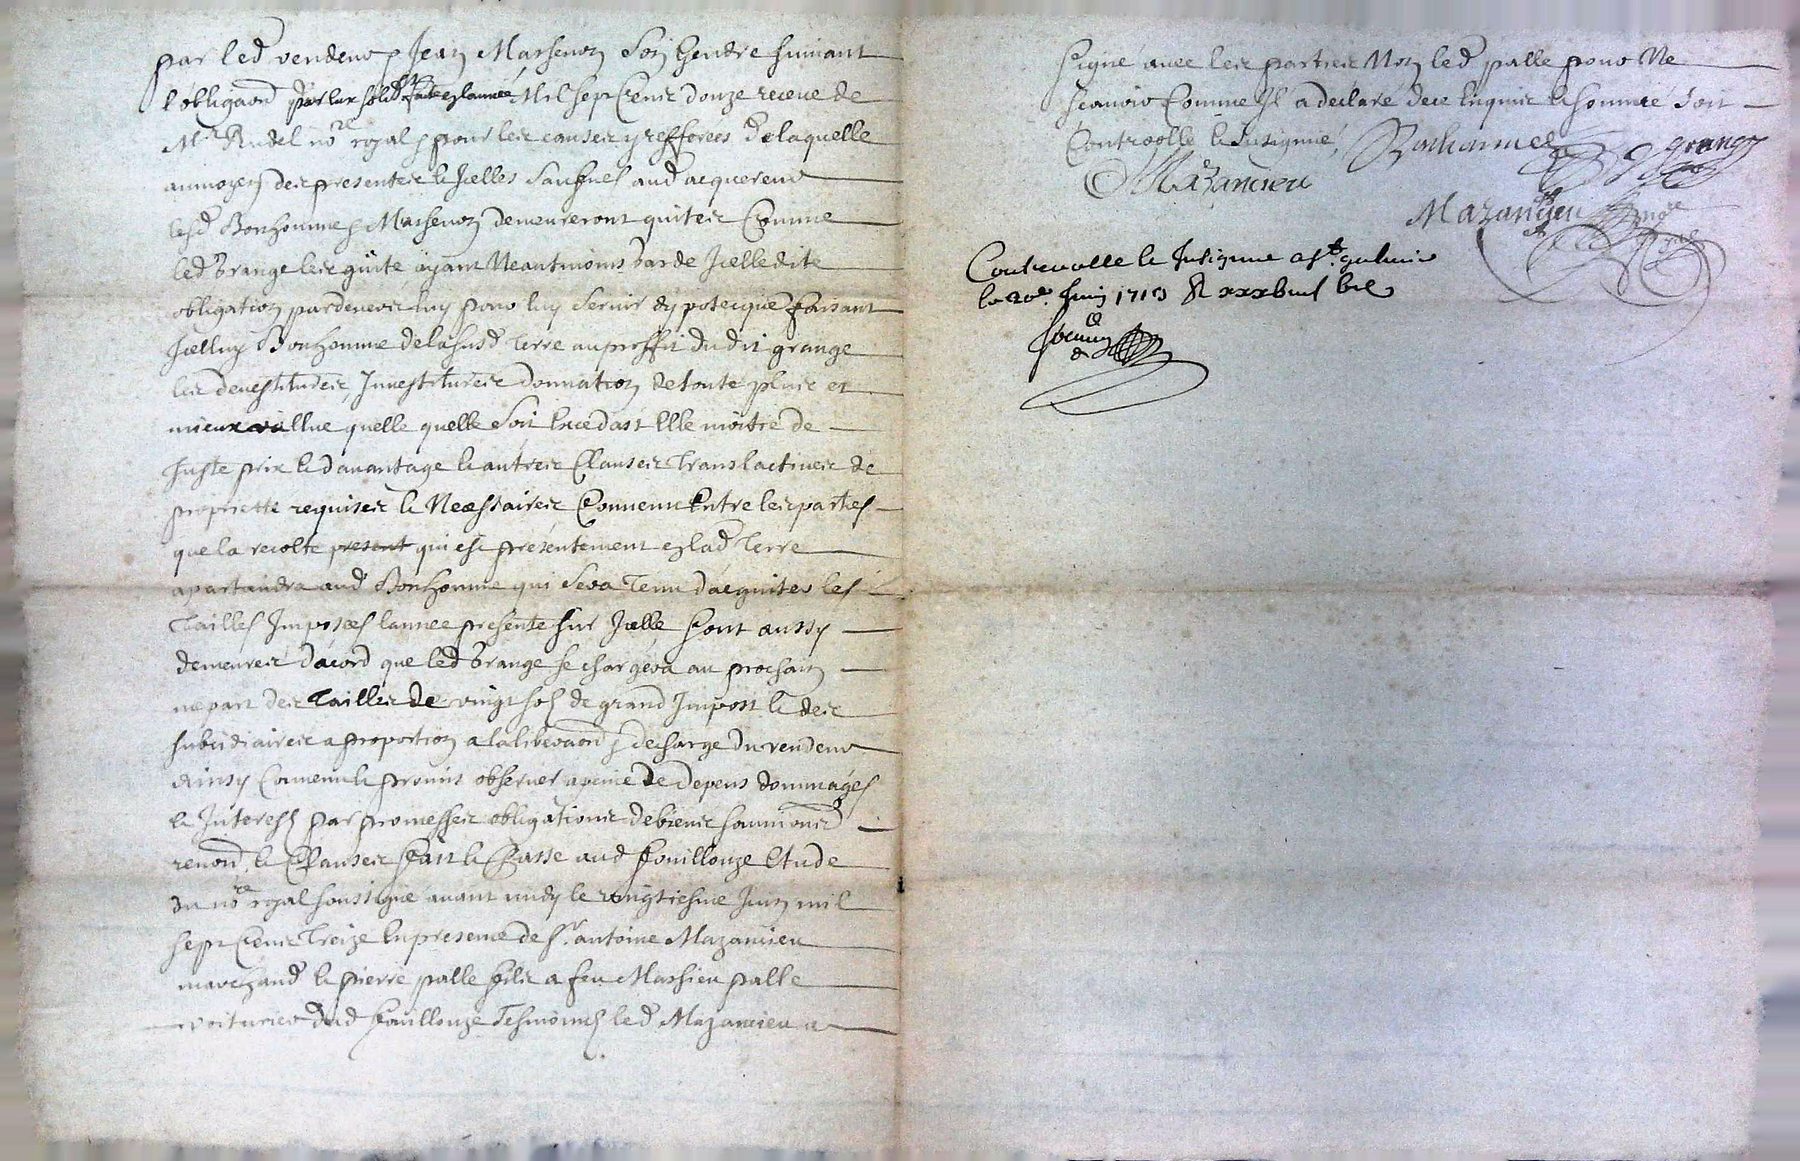 par led vendeur & Jean Massenon son gendre suivant
l'obligaon par lux solid. faite en lannee Mil sept Cens douze receue de
Mr Rudel nore royal & pour les causes y refferees de laquelle
aumoyen des presentes & Jcelles sauf ausd acquereur
lesd Bonhomme & Massenon demeureront quites Comme
led Grange les quite ayant Neantmoins Garde Jcelle dite
obligation pardevers luy pour luy servir dypotecque faisant
Jcelluy Bonhomme de la susd Terre au proffit du dit grange
les devestitures, Jnvestitures donnation de toute plus et
mieux vallue quelle quelle soit Excedast Elle moitié de
juste prix & davantage & autres Clauses translactives de
propriette requises & Necessaires Convenu Entre les parties
que la recolte present qui est presentement en lad Terre
apartiendra aud Bonhomme qui sera Tenu dacquiter les
Tailles Jmposees lannee presente sur Jcelle sont aussy
demeures dacord que led Grange se chargera au prochain
mepart des Tailles de vingt sols de grand Jmpost & des
subcidiaires a proportion a la liberaon & decharge du vendeur
Ainsy Convenu & promis observer a peine de depens dommages
& Jnterests par promesses obligations de biens soumions
renons & Clauses Fait & Passé aud Fouillouze Etude
du nore royal soussigné avant midy le vingtiesme Juin mil
sept Cens Treize En presence de Sr. antoine Mazancieu
marchand & pierre palle fils a feu Mathieu palle
voiturier dud Fouillouze Tesmoins led Mazancieu a
signé avec les parties Non led palle pour Ne
scavoir Comme Jl a declaré de ce Enquis & sommé Soit
Controollé & Jnsignué, Bonhomme grange
Mazancieu
Mazancieu nore
Royal
Controolle & Jnsignue a St. galmier
le 20e. Juin 1713 R